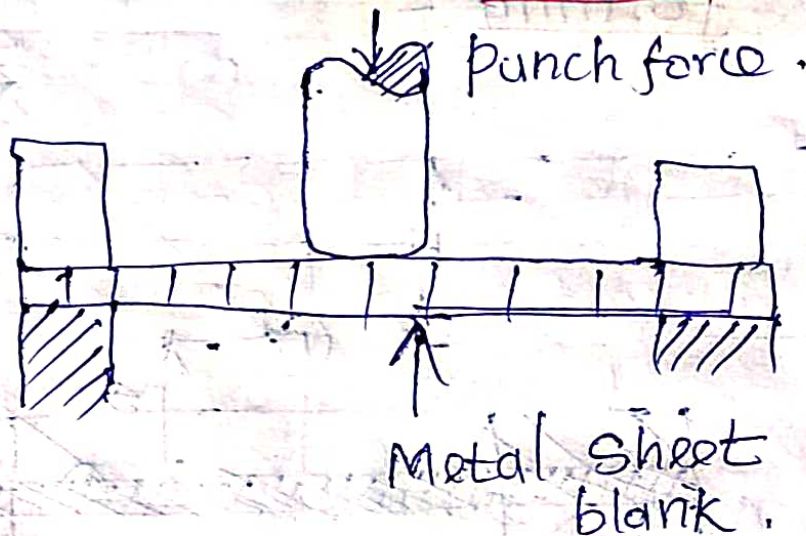 Punch force.
Metal sheet
blank.